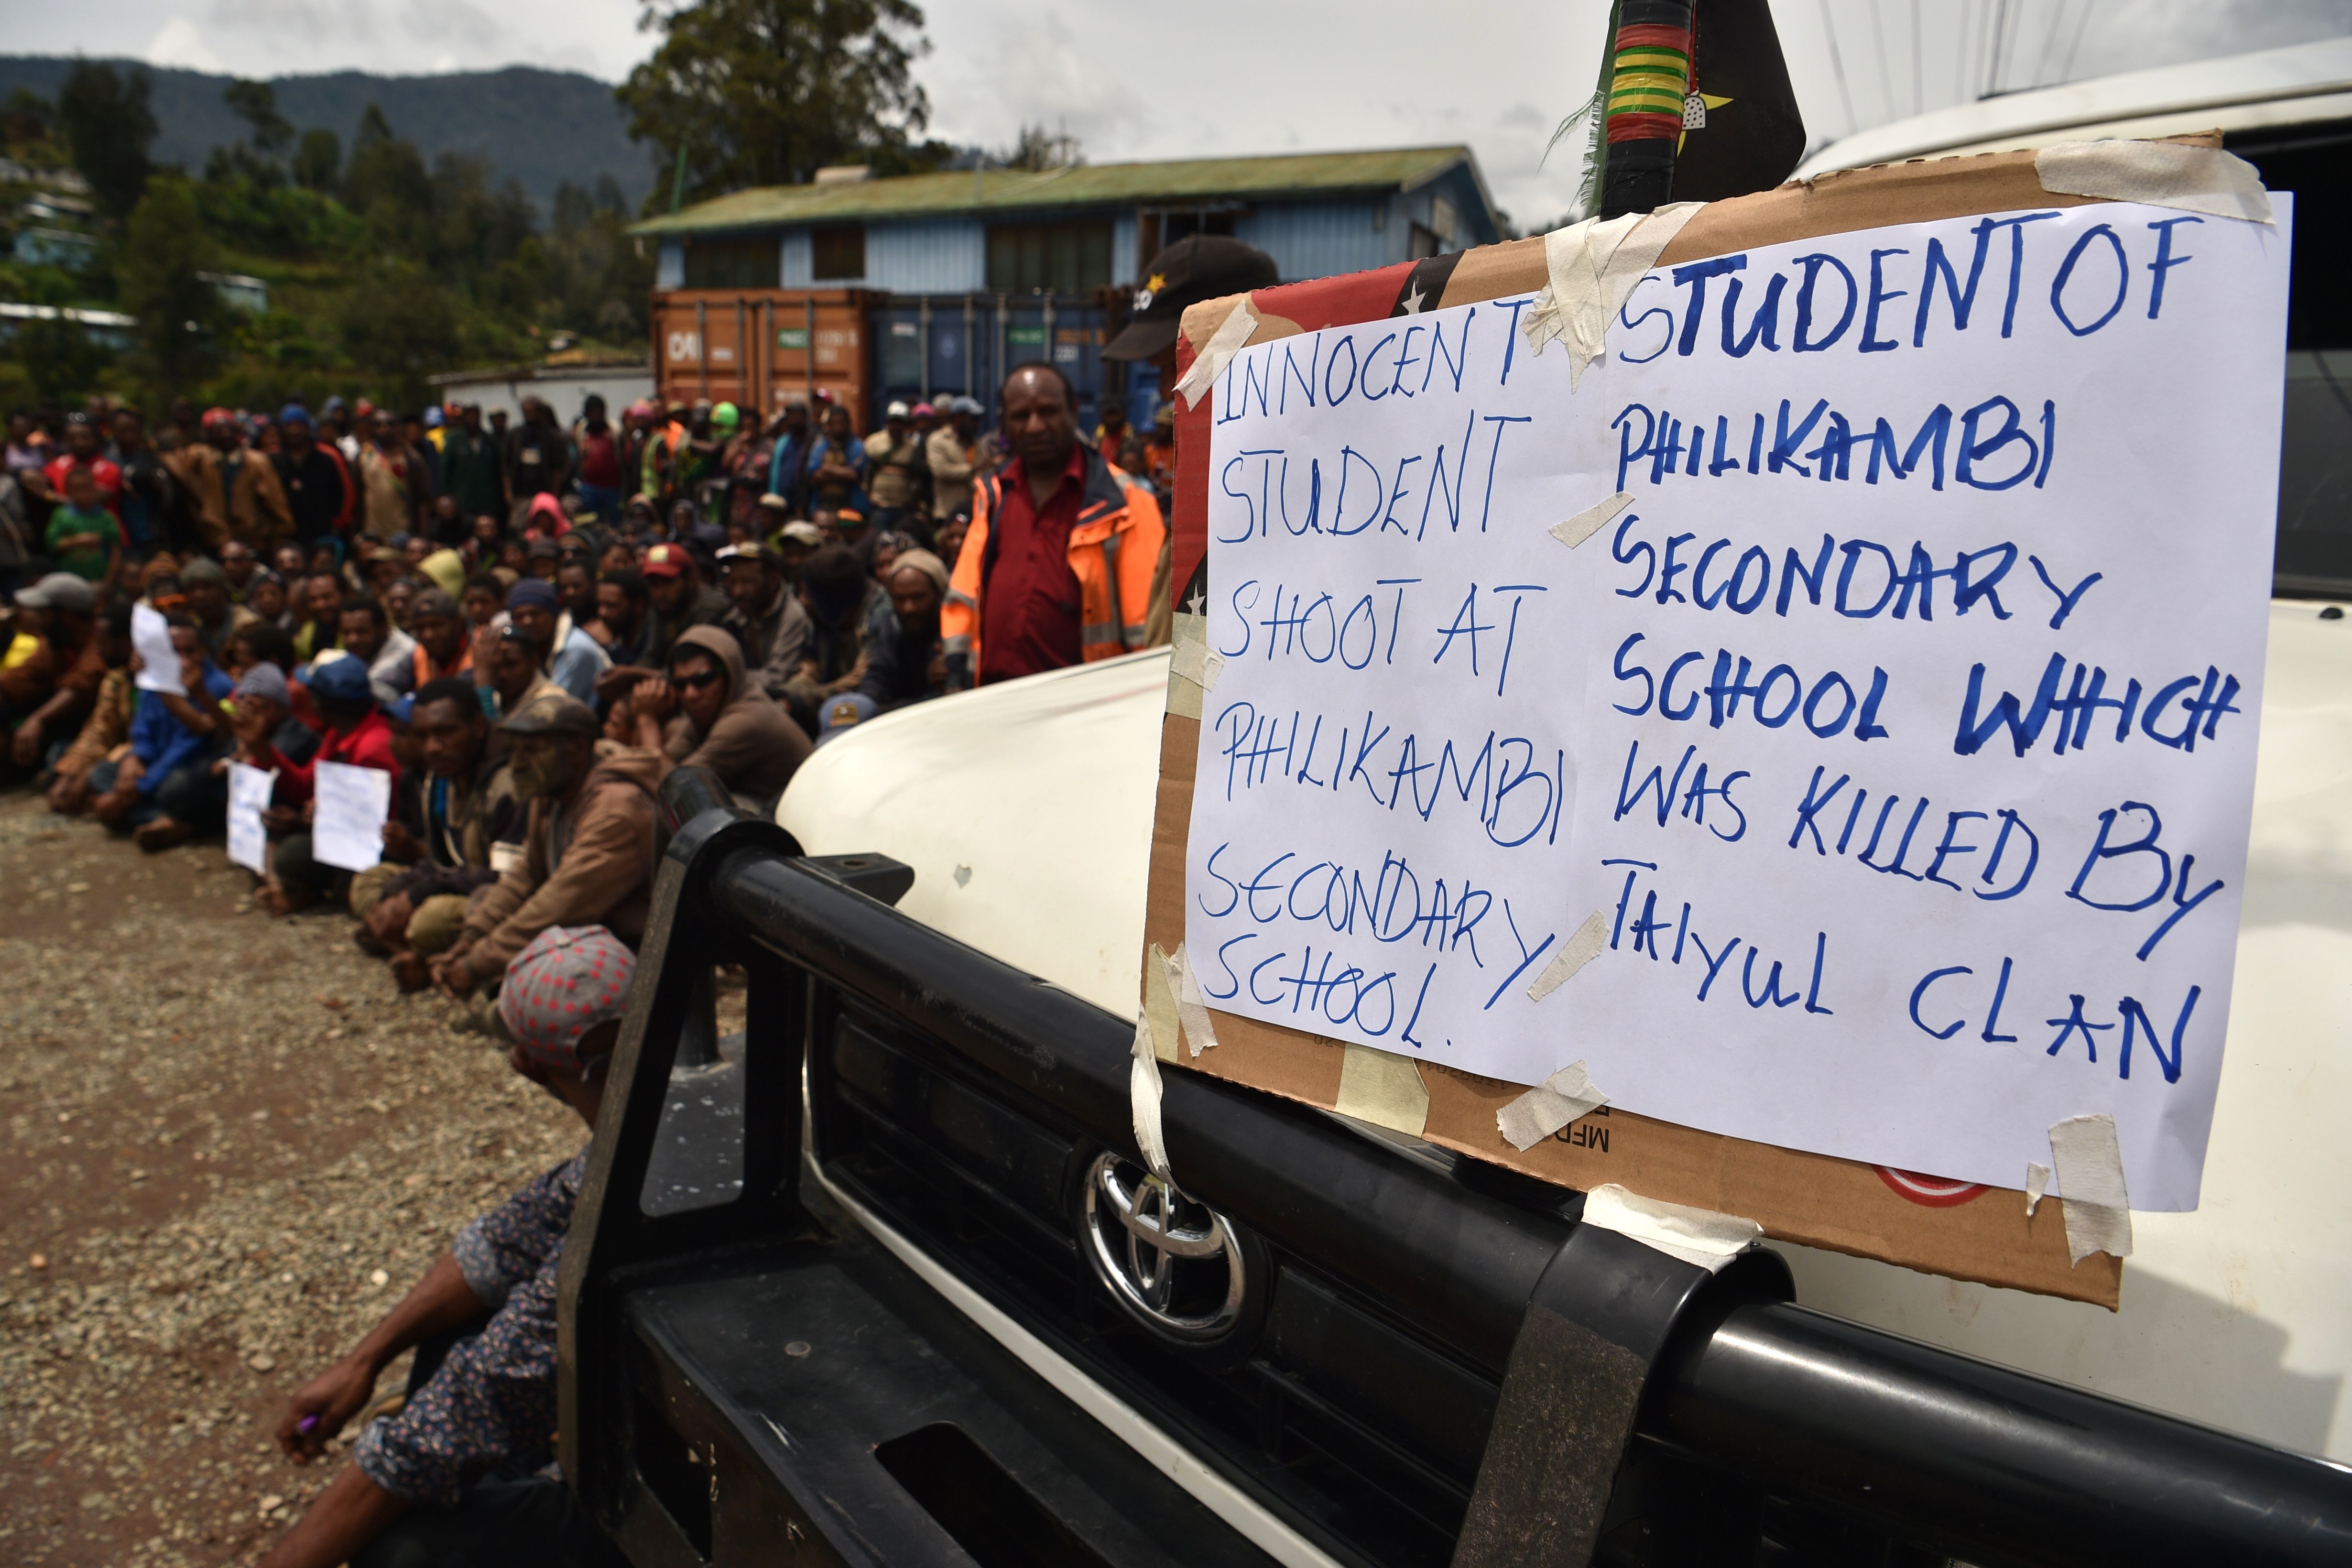 INNOCENT
STUDENT
SHOOT AT
PHILIKAMBI
SECONDARY
SCHOOL.
STUDENT OF
PHILIKAMBI
SECONDARY
SCHOOL WHICH
WAS KILLED BY
TAIYUL CLAN
MFD